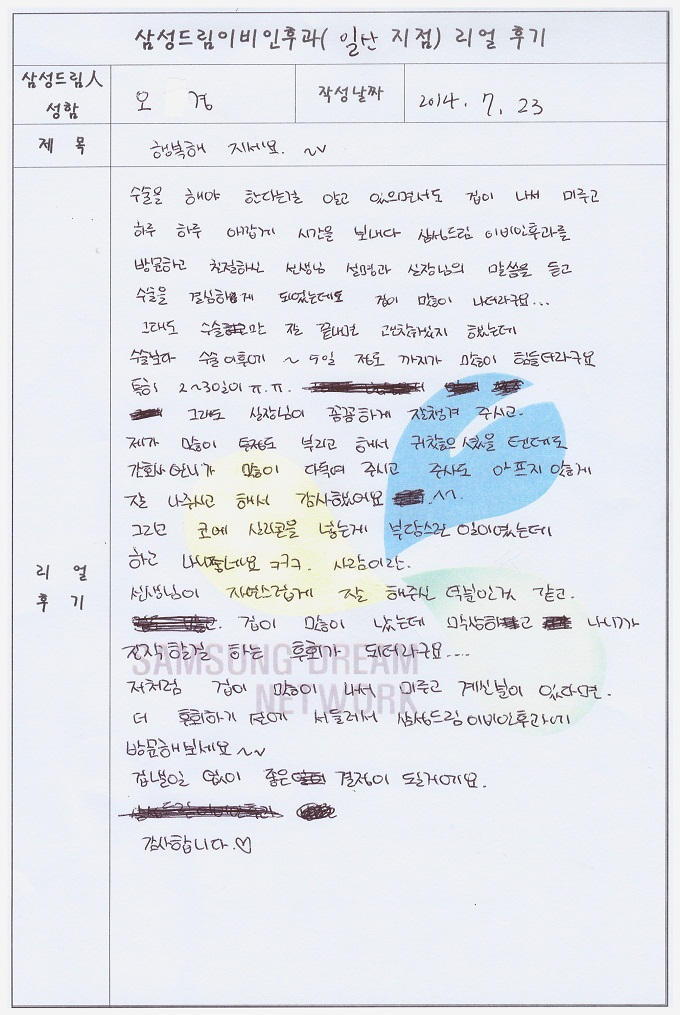 삼성드림이비인후과( 일산 지점) 리얼 후기
삼성드림人 성함
오 경
작성날짜
2014. 7. 23
제 목
행복해 지세요. ~
리 얼 후 기
수술을 해야 한다는걸 알고 있으면서도 겁이 나서 미루고
하루 하루 아깝게 시간을 보내다 삼성드림 이비인후과를
방문하고 친절하신 선생님 설명과 실장님의 말씀을 듣고
수술을 결심하게 되었는데도 겁이 많이 나더라구요...
그래도 수술만 잘 끝내면 괜찮하겠지 했는데
수술보다 수술이후에 ~ 5일 정도 까지가 많이 힘들더라구요
특히 2~3일이 ㅠ.ㅠ.
그래도 실장님이 꼼꼼하게 잘챙겨 주시고.
제가 많이 투정도 부리고 해서 귀찮으셨을 텐데도
간호사 언니가 많이 다독여 주시고 주사도 아프지 않게
잘 나주시고 해서 감사했어요 .^^.
그리고 코에 실리콘을 넣는게 부담스런 일이였는데
하고 나니좋네요 ㅋㅋㅋ. 사람이란.
선생님이 자연스럽게 잘 해주신 덕분인것 같고.
겁이 많이 났는데 막상하고 나니까
진작할걸 하는 후회가 되더라구요.....
저처럼 겁이 많이 나서 미루고 계신분이 있다면.
더 후회하기 전에 서둘러서 삼성드림이비인후과에
방문해보세요 ~
겁낼일 없이 좋은 결정이 될거에요.
감사합니다.♡
SAMSUNG DREAM
NETWORK